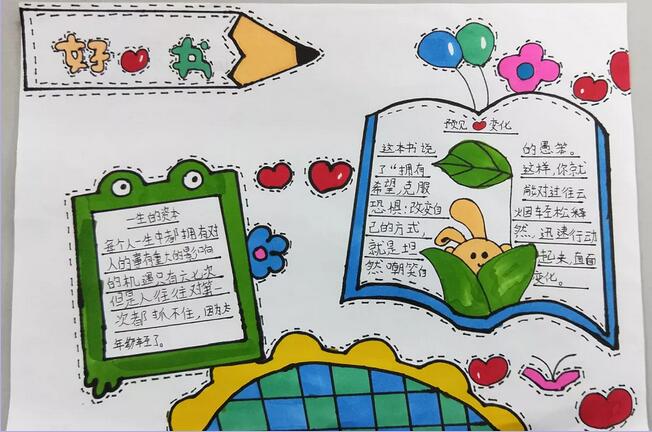 好书
一生的资本
每个人一生中都拥有对
人的事有重大的影响
的机遇只有六七次
但是人往往对第一
次都抓不住，因为太
年轻了。
预见变化
这本书说
了“拥有
希望,克服
恐惧:改变自
己的方式，
就是坦
然嘲笑自
的愚笨。
这样，你就
能对过往云
烟轻松释
然，迅速行动
起来，直面
变化。